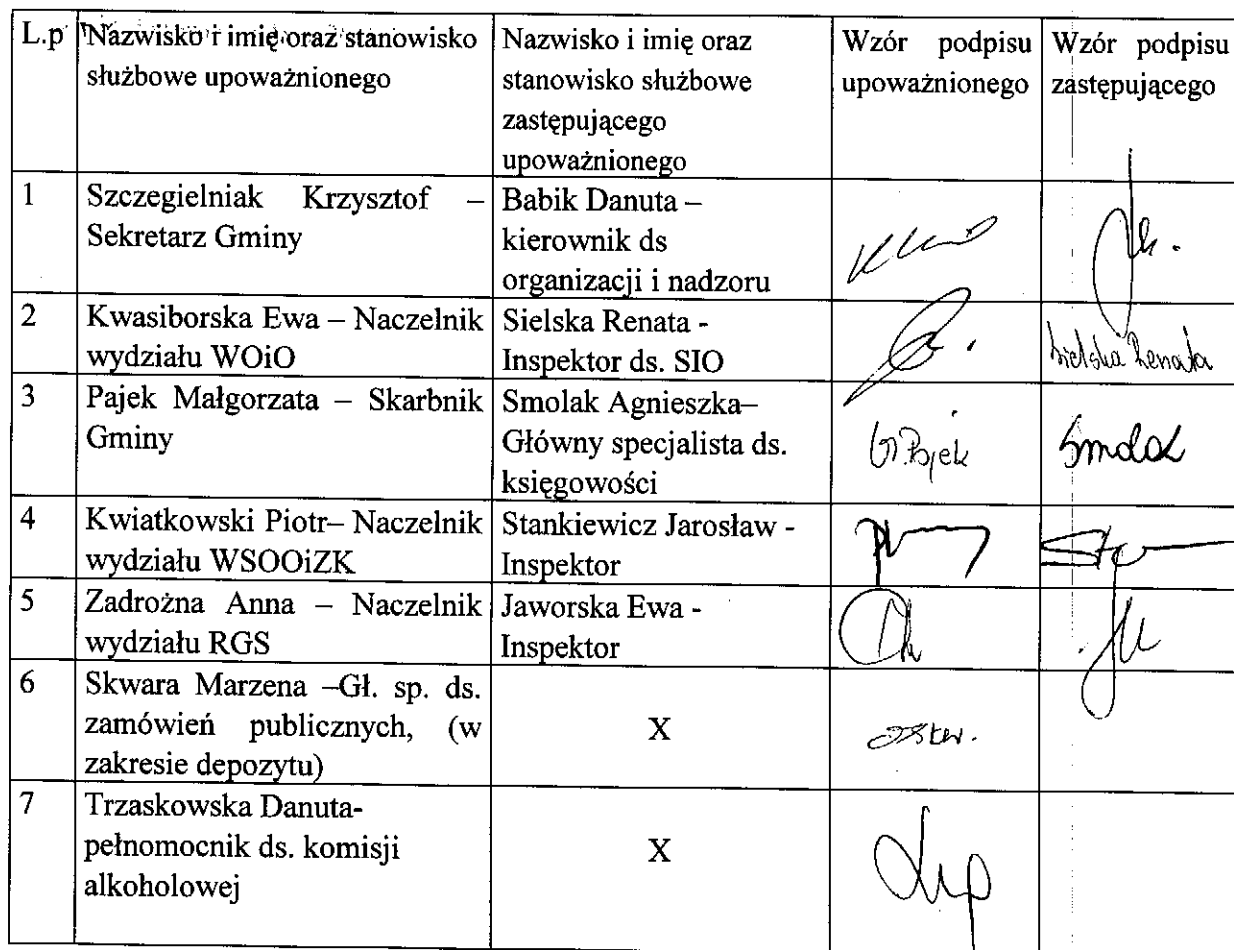 L.p
Nazwisko i imię oraz stanowisko
służbowe upoważnionego
Nazwisko i imię oraz
stanowisko służbowe
zastępującego
upoważnionego
Wzór podpisu
upoważnionego
Wzór podpisu
zastępującego
1
Szczegielniak Krzysztof –
Sekretarz Gminy
Babik Danuta –
kierownik ds
organizacji i nadzoru
2
Kwasiborska Ewa – Naczelnik
wydziału WOiO
Sielska Renata -
Inspektor ds. SIO
Sielska Renata
3
Pajek Małgorzata – Skarbnik
Gminy
Smolak Agnieszka–
Główny specjalista ds.
księgowości
M.Pajek
Smolak
4
Kwiatkowski Piotr– Naczelnik
wydziału WSOOiZK
Stankiewicz Jarosław -
Inspektor
5
Zadrożna Anna – Naczelnik
wydziału RGS
Jaworska Ewa -
Inspektor
6
Skwara Marzena –Gł. sp. ds.
zamówień publicznych, (w
zakresie depozytu)
X
7
Trzaskowska Danuta-
pełnomocnik ds. komisji
alkoholowej
X